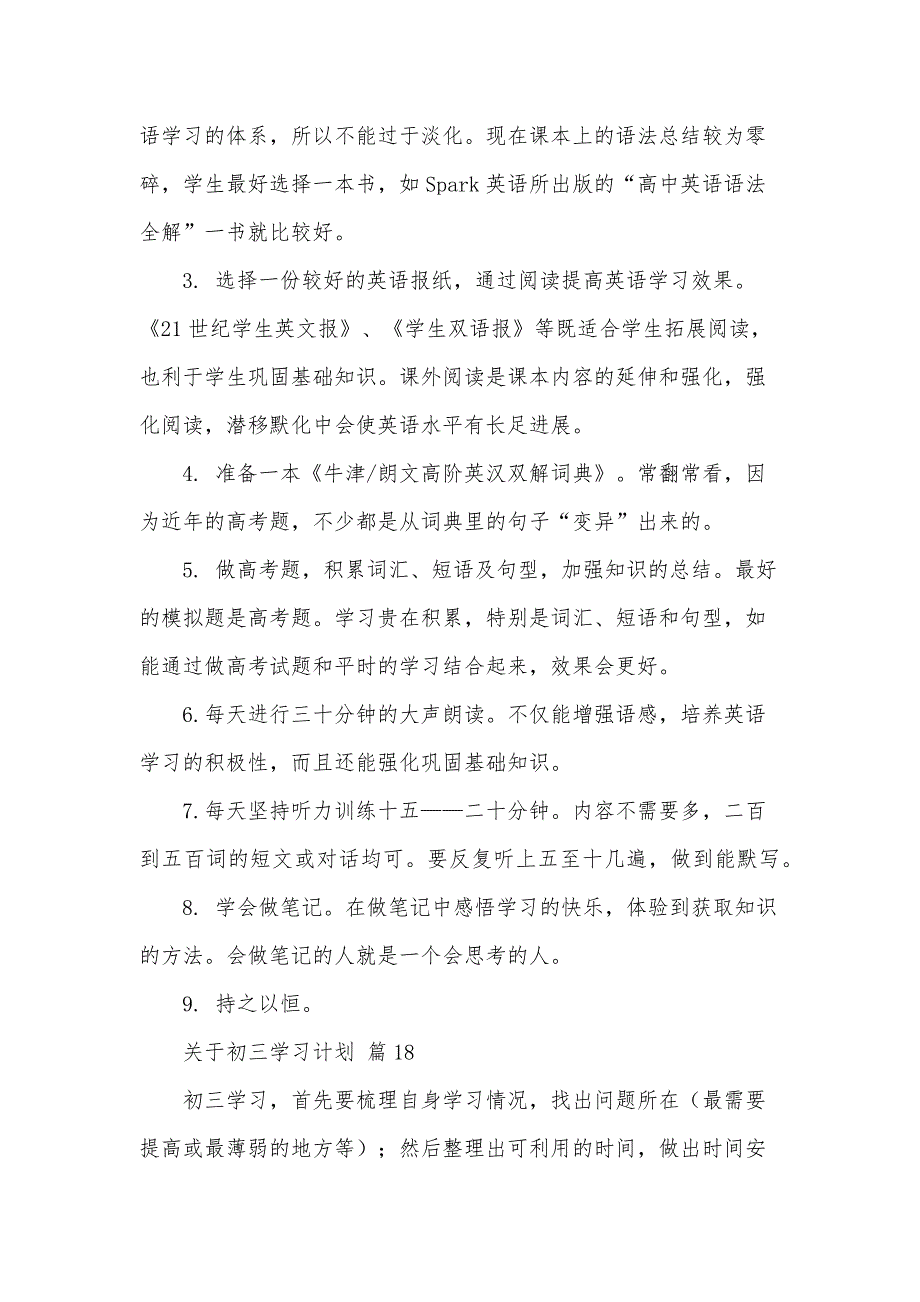 语学习的体系，所以不能过于淡化。现在课本上的语法总结较为零
碎，学生最好选择一本书，如 Spark 英语所出版的“高中英语语法
全解”一书就比较好。
3. 选择一份较好的英语报纸，通过阅读提高英语学习效果。
《21 世纪学生英文报》、《学生双语报》等既适合学生拓展阅读，
也利于学生巩固基础知识。课外阅读是课本内容的延伸和强化，强
化阅读，潜移默化中会使英语水平有长足进展。
4. 准备一本《牛津/朗文高阶英汉双解词典》。常翻常看，因
为近年的高考题，不少都是从词典里的句子“变异”出来的。
5. 做高考题，积累词汇、短语及句型，加强知识的总结。最好
的模拟题是高考题。学习贵在积累，特别是词汇、短语和句型，如
能通过做高考试题和平时的学习结合起来，效果会更好。
6.每天进行三十分钟的大声朗读。不仅能增强语感，培养英语
学习的积极性，而且还能强化巩固基础知识。
7.每天坚持听力训练十五——二十分钟。内容不需要多，二百
到五百词的短文或对话均可。要反复听上五至十几遍，做到能默写。
8. 学会做笔记。在做笔记中感悟学习的快乐，体验到获取知识
的方法。会做笔记的人就是一个会思考的人。
9. 持之以恒。
关于初三学习计划 篇18
初三学习，首先要梳理自身学习情况，找出问题所在（最需要
提高或最薄弱的地方等）；然后整理出可利用的时间，做出时间安